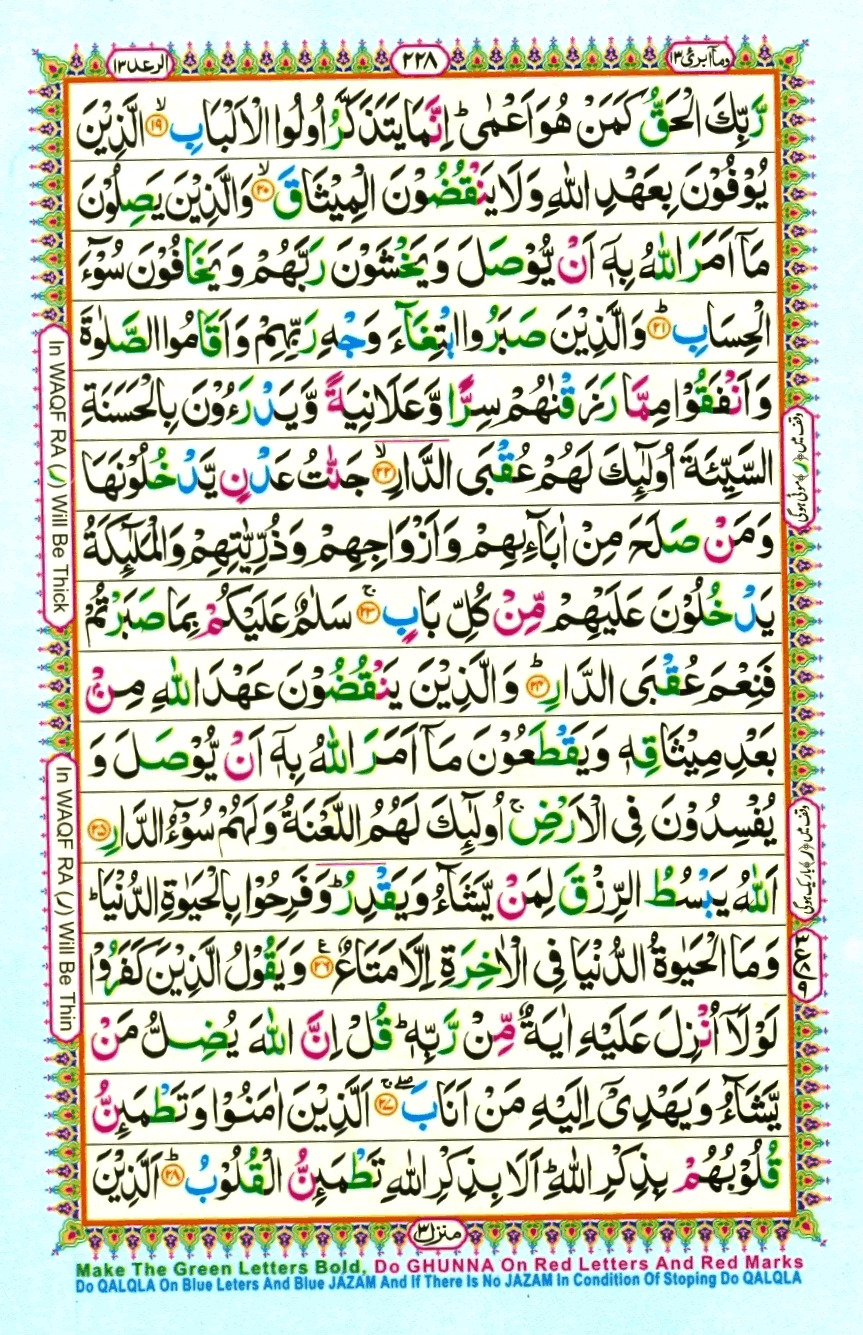 الرعد ١٣
٢٢٨
وماۤ ابرئ ١٣
رَّبِّكَ الْحَقُّ كَمَنْ هُوَ اَعْمٰىؕ اِنَّمَا يَتَذَكَّرُ اُولُوا الْاَلْبَابِۙ ۱۹ الَّذِيْنَ
يُوْفُوْنَ بِعَهْدِ اللّٰهِ وَلَا يَنْقُضُوْنَ الْمِيْثَاقَۙ ۲۰ وَالَّذِيْنَ يَصِلُوْنَ
مَاۤ اَمَرَ اللّٰهُ بِهٖۤ اَنْ يُّوْصَلَ وَيَخْشَوْنَ رَبَّهُمْ وَيَخَافُوْنَ سُوْٓءَ
الْحِسَابِؕ ۲۱ وَالَّذِيْنَ صَبَرُوا ابْتِغَآءَ وَجْهِ رَبِّهِمْ وَاَقَامُوا الصَّلٰوةَ
وَاَنْفَقُوْا مِمَّا رَزَقْنٰهُمْ سِرًّا وَّعَلَانِيَةً وَّيَدْرَءُوْنَ بِالْحَسَنَةِ
السَّيِّئَةَ اُولٰٓئِكَ لَهُمْ عُقْبَى الدَّارِۙ ۲۲ جَنّٰتُ عَدْنٍ يَّدْخُلُوْنَهَا
وَمَنْ صَلَحَ مِنْ اٰبَآئِهِمْ وَاَزْوَاجِهِمْ وَذُرِّيّٰتِهِمْ وَالْمَلٰٓئِكَةُ
يَدْخُلُوْنَ عَلَيْهِمْ مِّنْ كُلِّ بَابٍۚ ۲۳ سَلٰمٌ عَلَيْكُمْ بِمَا صَبَرْتُمْ
فَنِعْمَ عُقْبَى الدَّارِؕ ۲۴ وَالَّذِيْنَ يَنْقُضُوْنَ عَهْدَ اللّٰهِ مِنْۢ
بَعْدِ مِيْثَاقِهٖ وَيَقْطَعُوْنَ مَاۤ اَمَرَ اللّٰهُ بِهٖۤ اَنْ يُّوْصَلَ وَ
يُفْسِدُوْنَ فِى الْاَرْضِۙ اُولٰٓئِكَ لَهُمُ اللَّعْنَةُ وَلَهُمْ سُوْٓءُ الدَّارِ ۲۵
اَللّٰهُ يَبْسُطُ الرِّزْقَ لِمَنْ يَّشَآءُ وَيَقْدِرُؕ وَفَرِحُوْا بِالْحَيٰوةِ الدُّنْيَاؕ
وَمَا الْحَيٰوةُ الدُّنْيَا فِى الْاٰخِرَةِ اِلَّا مَتَاعٌ ۲۶ وَيَقُوْلُ الَّذِيْنَ كَفَرُوْا
لَوْلَاۤ اُنْزِلَ عَلَيْهِ اٰيَةٌ مِّنْ رَّبِّهٖؕ قُلْ اِنَّ اللّٰهَ يُضِلُّ مَنْ
يَّشَآءُ وَيَهْدِىْۤ اِلَيْهِ مَنْ اَنَابَۖۚ ۲۷ اَلَّذِيْنَ اٰمَنُوْا وَتَطْمَئِنُّ
قُلُوْبُهُمْ بِذِكْرِ اللّٰهِؕ اَلَا بِذِكْرِ اللّٰهِ تَطْمَئِنُّ الْقُلُوْبُؕ ۲۸ اَلَّذِيْنَ
In WAQF RA (ر) Will Be Thick
In WAQF RA (ر) Will Be Thin
وقف میں (ر) موٹی ہوگی
وقف میں (ر) باریک ہوگی
منزل ٣
Make The Green Letters Bold, Do GHUNNA On Red Letters And Red Marks
Do QALQLA On Blue Leters And Blue JAZAM And If There Is No JAZAM In Condition Of Stoping Do QALQLA